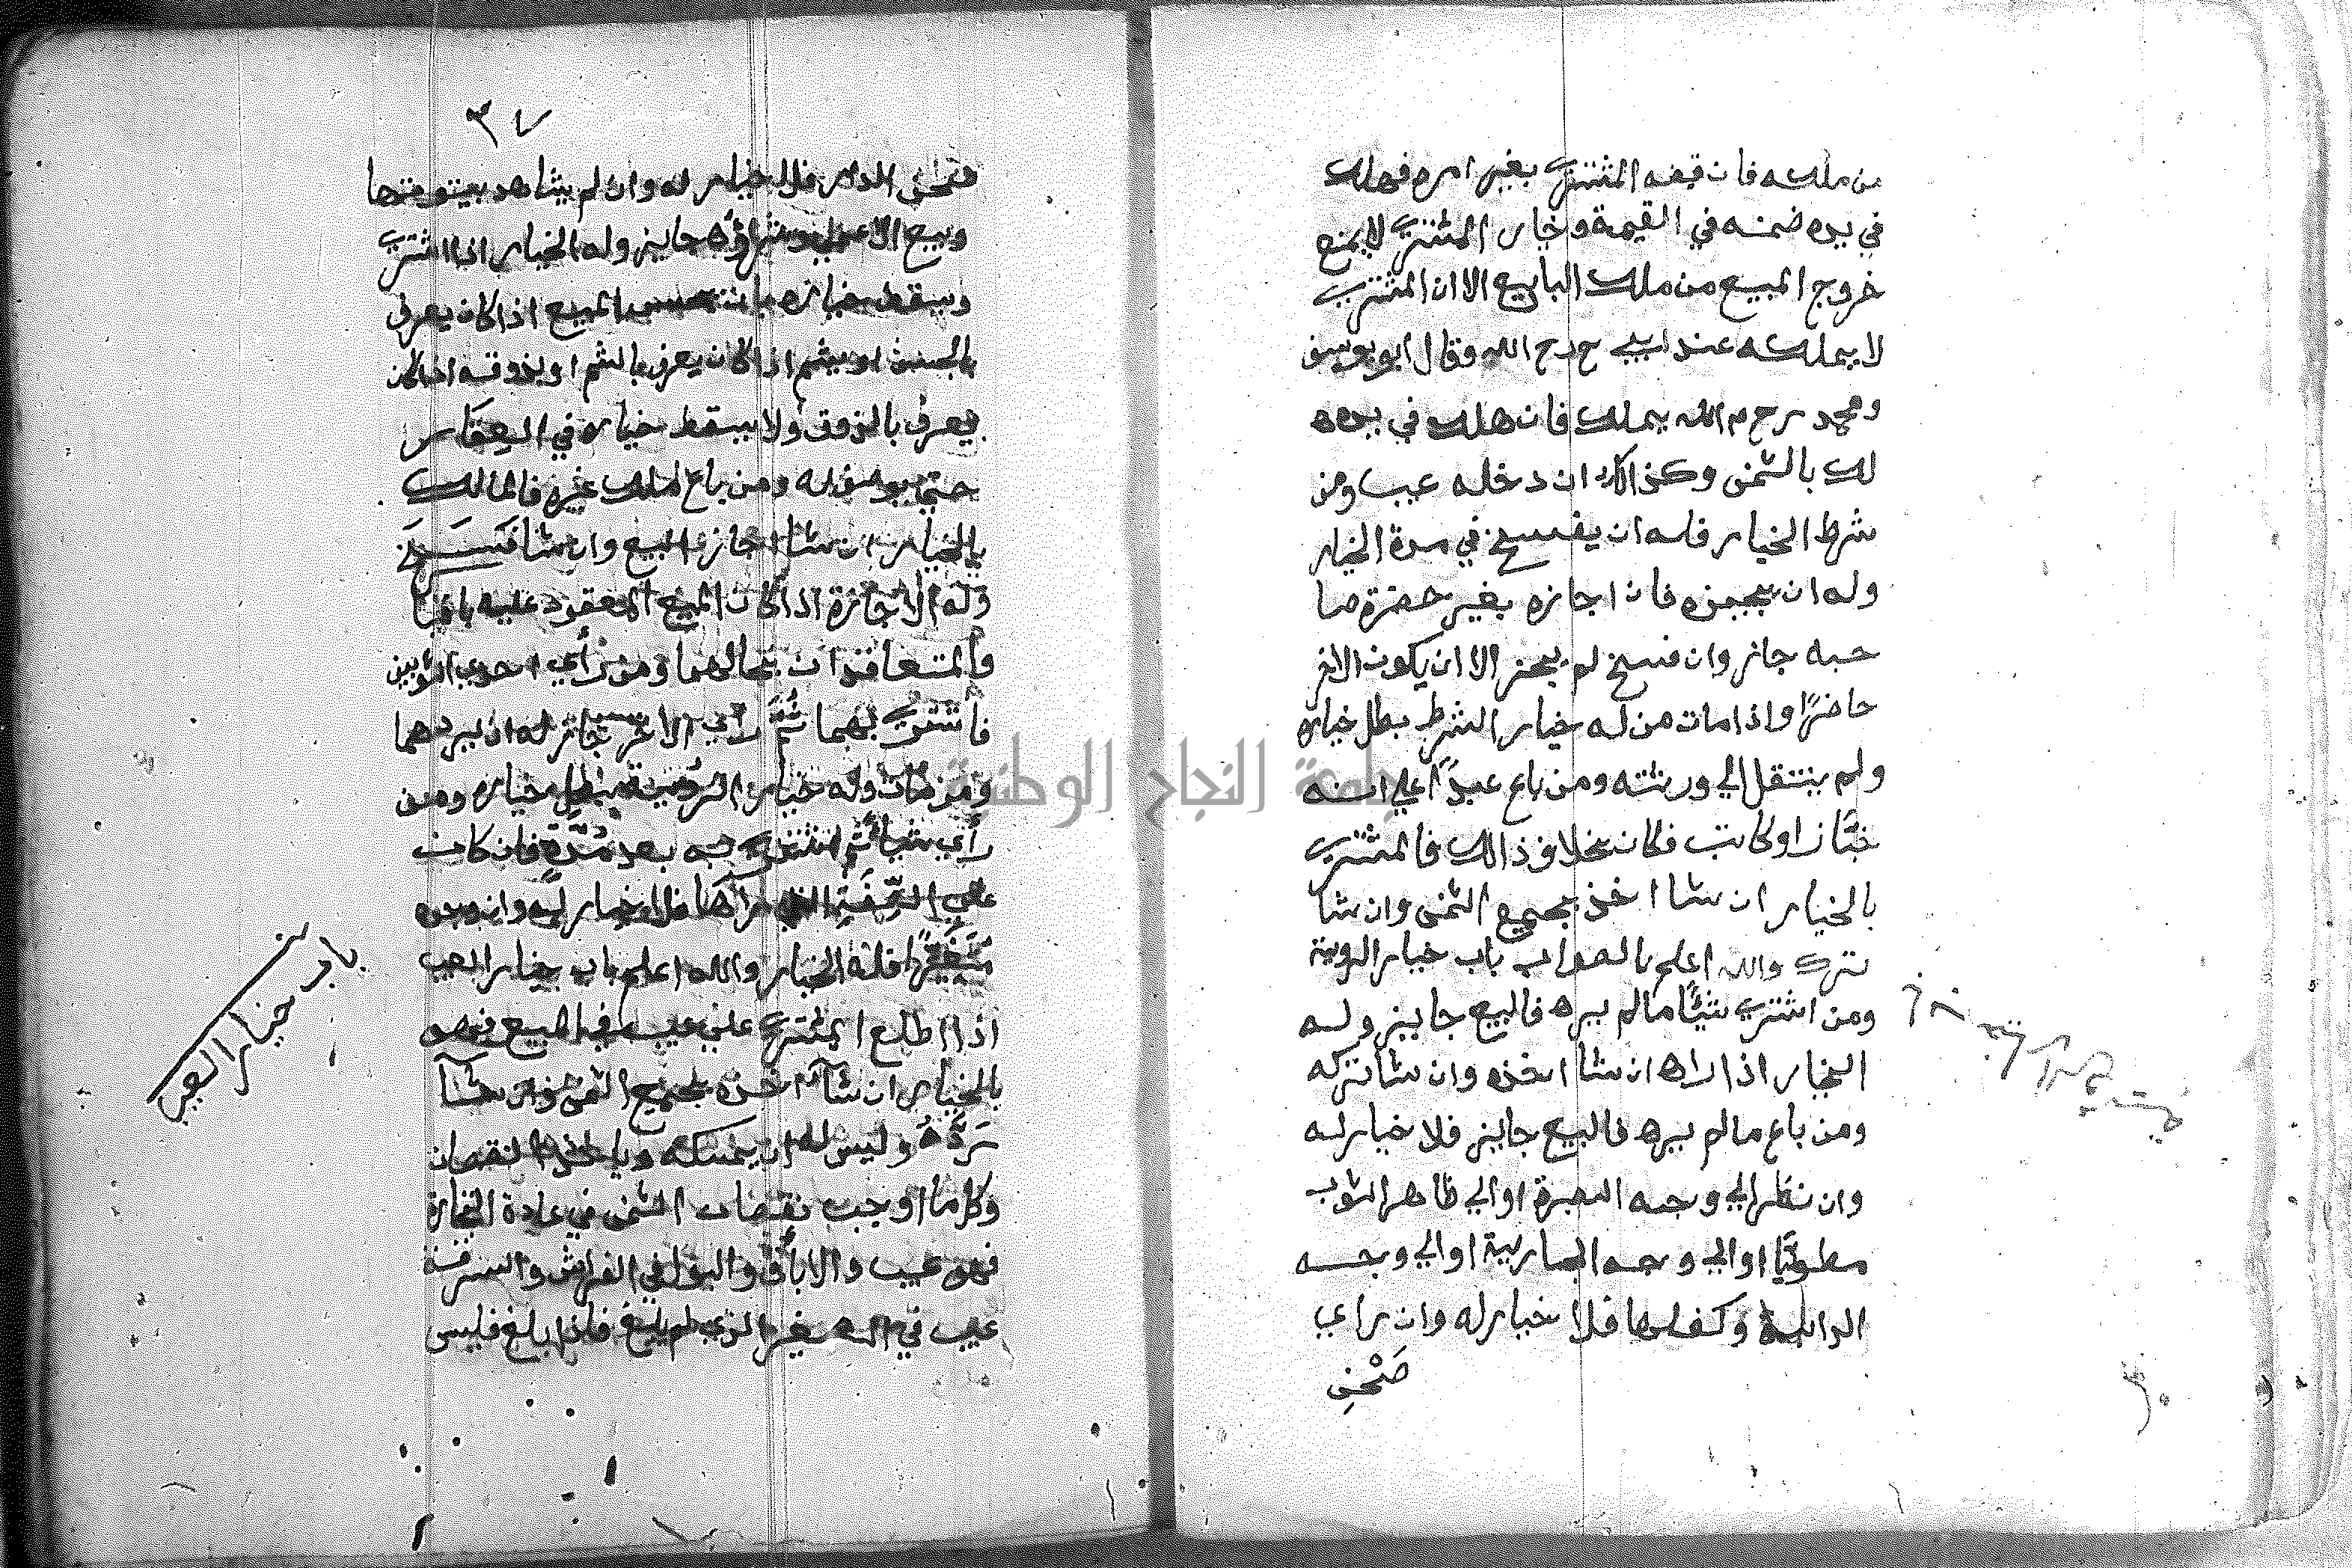 من ملكه فان قبضه المشتري بغير امره فهلك
في يده ضمنه في القيمة وخيار المشتري لا يمنع
خروج المبيع من ملك البايع الا ان المشتري
لا يملكه عند ابي ح رح الله وقال ابو يوسف
ومحمد رحمم الله يملك فان هلك في يده ه
لك بالثمن وكذالك ان دخله عيب ومن
شرط الخيار فله ان يفسخ في مدة الخيار
وله ان يجيزه فان اجازه بغير حضرة صا
حبه جاز وان فسخ لم يجز الا ان يكون الاخر
حاضرًا واذا مات من له خيار الشرط بطل خياره
ولم ينتقل الي ورثته ومن باع عبدًا علي انه
خبّاز او كاتب فكان بخلاف ذالك فالمشتري
بالخيار ان شا اخذ بجميع الثمن وان شا
ترك والله اعلم بالصواب باب خيار الروية
ومن اشتري شيئًا مالم يره فالبيع جايز وله
الخيار اذا راه ان شا اخذه وان شا تركه
ومن باع مالم يره فالبيع جايز فلا خيار له
وان نظر الي وجه الصبرة او الي ظاهر الثوب
مطويًّا او الي وجه الجارية او الي وجه
الدابة وكفلها فلا خيار له وان راي
صَحْنِ
٣٧
صحن الدار فلا خيار له وان لم يشاهد بيتوتتها
وبيع الاعمي وشراؤه جايز وله الخيار اذا اشتري
ويسقط خياره بان يجس المبيع اذا كان يعرف
بالجس او يشم اذا كان يعرف بالشم او يذوقه اذا كان
يعرف بالذوق ولا يسقط خياره في العِقَار
حتي يوصف له ومن باع ملك غيره فالمالك
بالخيار ان شا اجاز البيع وان شا فَسَخَ
وله الاجازة اذا كان المبيع المعقود عليه باقيا
والمتعاقدان بحالهما ومن رأي احدي الثوبين
فاشتراهما ثُمَّ رأي الاخر جاز له ان يردهما
ومن مات وله خيار الرُوية بطل خياره ومن
رأي شيأ ثم اشتري به بعد مُدّة فان كان
علي الصِّفَةِ التي رآها فلا خيار له وان وجده
مُتَغَيّرًا فله الخيار والله اعلم باب خيار العيب
اذا اطلع المشتري علي عيب في المبيع فهو
بالخيار ان شآ اخذه بجميع الثمن وان شآ
رَدَّهُ وليس له ان يمسكه وياخذ النقصان
وكل ما اوجب نقصان الثمن في عادة التجارة
فهو عيب والاباق والبول في الفراش والسرقة
عيب في الصغير الذي لم يبلغ فاذا بلغ فليس
باب خيار العيب
جامعة النجاح الوطنية